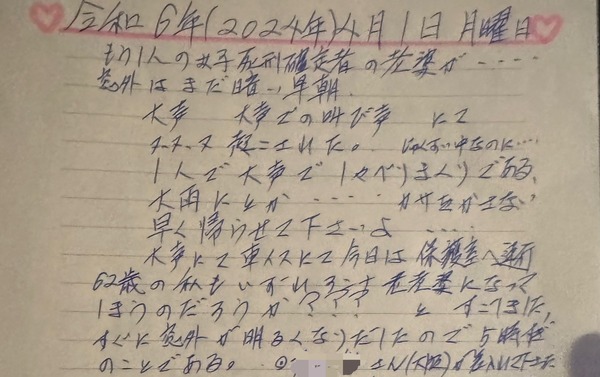 令和6年(2024年)4月1日 月曜日
もう1人の女子死刑確定者の老婆が‥‥
窓外はまだ暗い早朝.
大声 大声での叫び声 にて
起こされた。
1人で大声で1人しゃべりまくりである,
大雨にとか ‥‥ カサをかさない
早く帰らせて下さいよ ‥‥
大声にて車イスにて今日は保護室へ連行
62歳の私もいずれ 老婆になって
しまうのだろうか??? と
すぐに窓外が明るくなりだしたので5時
のことである。 さん(大阪)が差入れて下さ